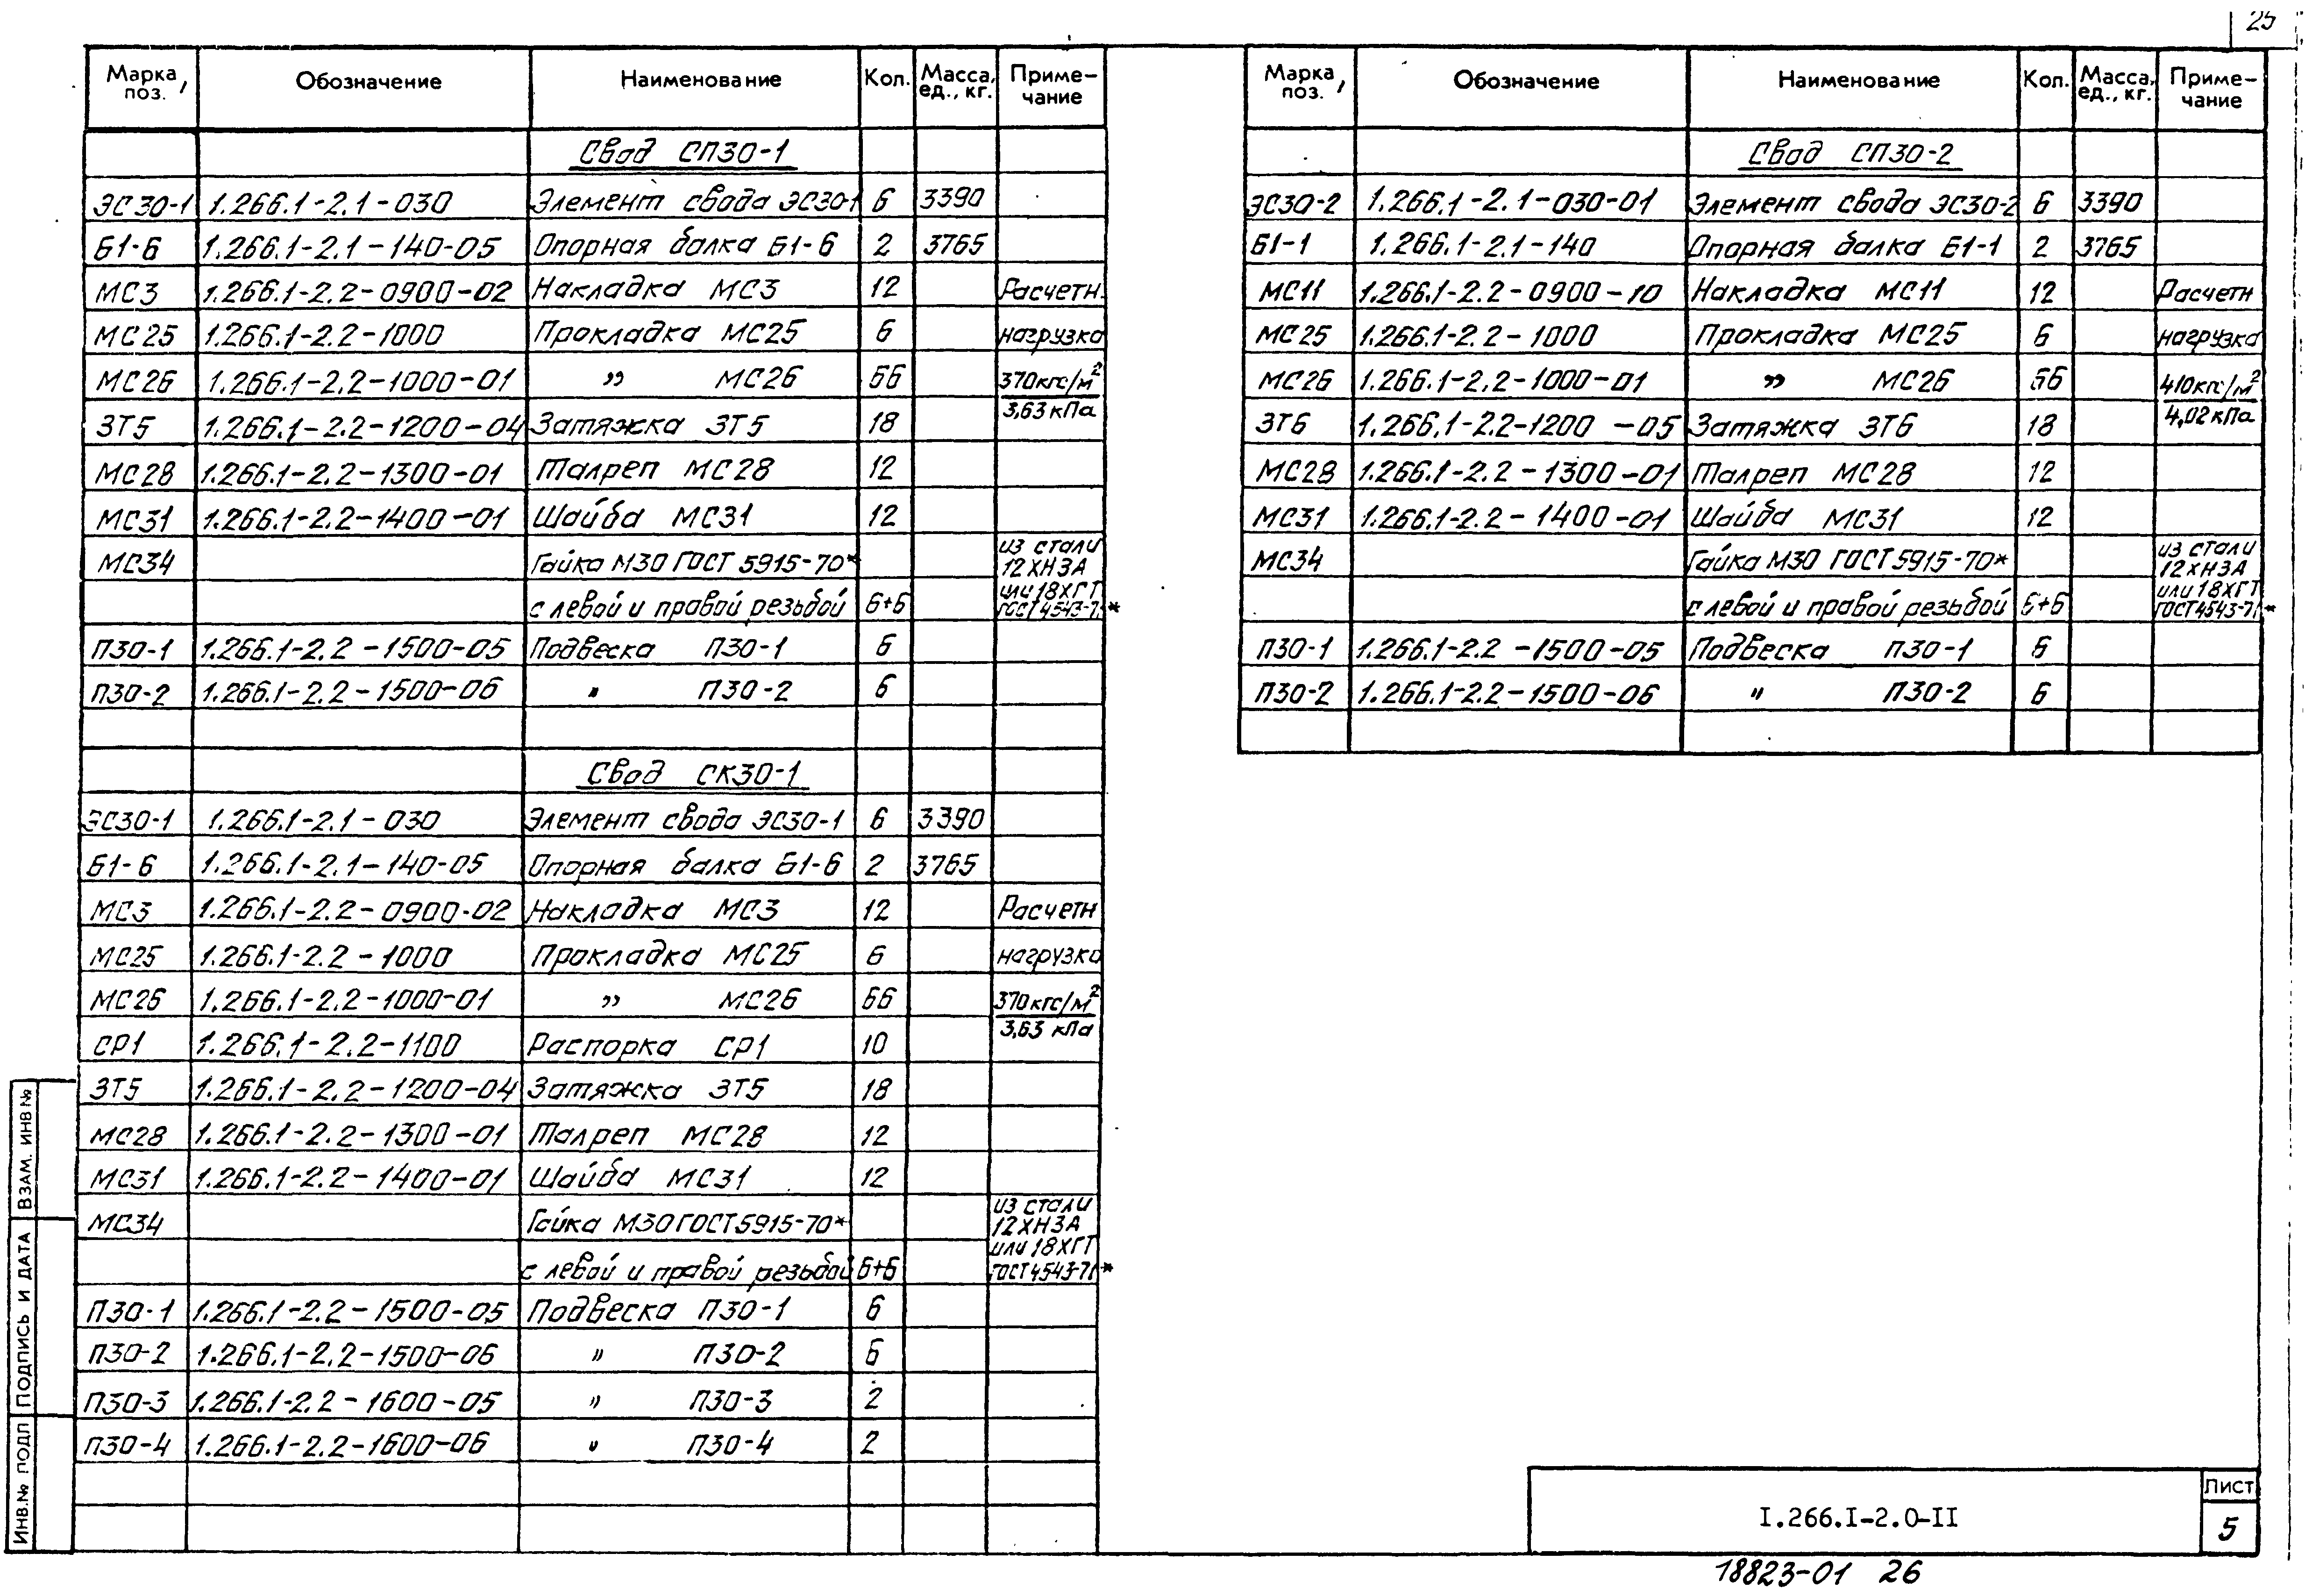 25
Марка, поз. Обозначение Наименование Кол. Масса, ед., кг. Примечание
Свод СП30-1
ЭС30-1 1.266.1-2.1-030 Элемент свода ЭС30-1 6 3390
Б1-6 1.266.1-2.1-140-05 Опорная балка Б1-6 2 3765
МС3 1.266.1-2.2-0900-02 Накладка МС3 12 Расчетн.
МС25 1.266.1-2.2-1000 Прокладка МС25 6 нагрузка
МС26 1.266.1-2.2-1000-01 " МС26 66 370кгс/м²
ЗТ5 1.266.1-2.2-1200-04 Затяжка ЗТ5 18 3,63 кПа
МС28 1.266.1-2.2-1300-01 Талреп МС28 12
МС31 1.266.1-2.2-1400-01 Шайба МС31 12
МС34 Гайка М30 ГОСТ 5915-70* из стали 12ХН3А
с левой и правой резьбой 6+6 или 18ХГТ ГОСТ 4543-71*
П30-1 1.266.1-2.2-1500-05 Подвеска П30-1 6
П30-2 1.266.1-2.2-1500-06 " П30-2 6
Свод СК30-1
ЭС30-1 1.266.1-2.1-030 Элемент свода ЭС30-1 6 3390
Б1-6 1.266.1-2.1-140-05 Опорная балка Б1-6 2 3765
МС3 1.266.1-2.2-0900-02 Накладка МС3 12 Расчетн
МС25 1.266.1-2.2-1000 Прокладка МС25 6 нагрузка
МС26 1.266.1-2.2-1000-01 " МС26 66 370кгс/м²
СР1 1.266.1-2.2-1100 Распорка СР1 10 3,63 кПа
ЗТ5 1.266.1-2.2-1200-04 Затяжка ЗТ5 18
МС28 1.266.1-2.2-1300-01 Талреп МС28 12
МС31 1.266.1-2.2-1400-01 Шайба МС31 12
МС34 Гайка М30 ГОСТ 5915-70* из стали 12ХН3А
с левой и правой резьбой 6+6 или 18ХГТ ГОСТ 4543-71*
П30-1 1.266.1-2.2-1500-05 Подвеска П30-1 6
П30-2 1.266.1-2.2-1500-06 " П30-2 6
П30-3 1.266.1-2.2-1600-05 " П30-3 2
П30-4 1.266.1-2.2-1600-06 " П30-4 2
Марка, поз. Обозначение Наименование Кол. Масса, ед., кг. Примечание
Свод СП30-2
ЭС30-2 1.266.1-2.1-030-01 Элемент свода ЭС30-2 6 3390
Б1-1 1.266.1-2.1-140 Опорная балка Б1-1 2 3765
МС11 1.266.1-2.2-0900-10 Накладка МС11 12 Расчетн
МС25 1.266.1-2.2-1000 Прокладка МС25 6 нагрузка
МС26 1.266.1-2.2-1000-01 " МС26 66 410кгс/м²
ЗТ6 1.266.1-2.2-1200-05 Затяжка ЗТ6 18 4,02 кПа
МС28 1.266.1-2.2-1300-01 Талреп МС28 12
МС31 1.266.1-2.2-1400-01 Шайба МС31 12
МС34 Гайка М30 ГОСТ 5915-70* из стали 12ХН3А
с левой и правой резьбой 6+6 или 18ХГТ ГОСТ 4543-71*
П30-1 1.266.1-2.2-1500-05 Подвеска П30-1 6
П30-2 1.266.1-2.2-1500-06 " П30-2 6
ИНВ.№ ПОДП ПОДПИСЬ И ДАТА ВЗАМ. ИНВ №
I.266.I-2.0-II
Лист
5
18823-01 26